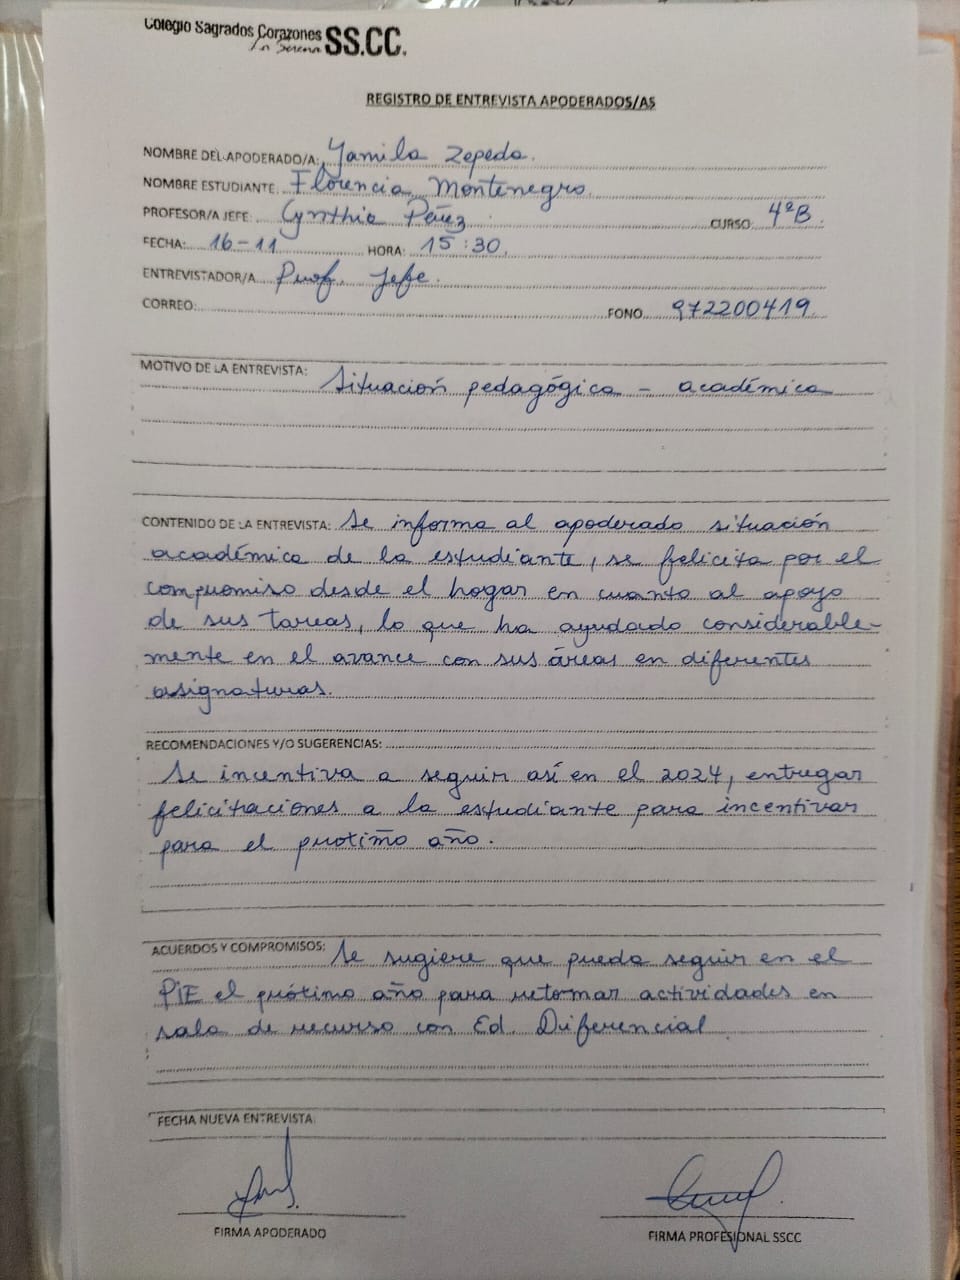 Colegio Sagrados Corazones
La Serena SS.CC.
REGISTRO DE ENTREVISTA APODERADOS/AS
NOMBRE DEL APODERADO/A: Yamila Zepeda.
NOMBRE ESTUDIANTE: Florencia Montenegro.
PROFESOR/A JEFE: Cynthia Pérez CURSO: 4ºB
FECHA: 16-11 HORA: 15:30.
ENTREVISTADOR/A Prof. Jefe.
CORREO: FONO 972200419
MOTIVO DE LA ENTREVISTA: Situación pedagógica - académica
CONTENIDO DE LA ENTREVISTA: Se informa al apoderado situación
académica de la estudiante, se felicita por el
compromiso desde el hogar en cuanto al apoyo
de sus tareas, lo que ha ayudado considerable-
mente en el avance con sus áreas en diferentes
asignaturas.
RECOMENDACIONES Y/O SUGERENCIAS:
Se incentiva a seguir así en el 2024, entregar
felicitaciones a la estudiante para incentivar
para el protimo año.
ACUERDOS Y COMPROMISOS: Se sugiere que pueda seguir en el
PIE el próximo año para retomar actividades en
sala de recurso con Ed. Diferencial
FECHA NUEVA ENTREVISTA:
FIRMA APODERADO
FIRMA PROFESIONAL SSCC